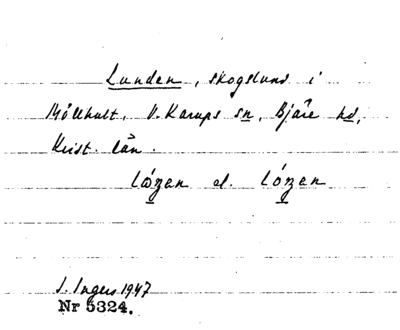 Lunden, skogslund i
Böllhult, V. Karups sn, Bjäre hd,
Krist. län.
el.
I. Ingers 1947
Nr 5324.